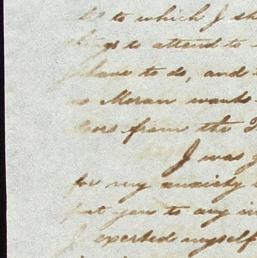 to which I sh
to attend to
have to do, and
as Moran wants
from the
I was g
for my anxiety
put you to any in
I exerted myself